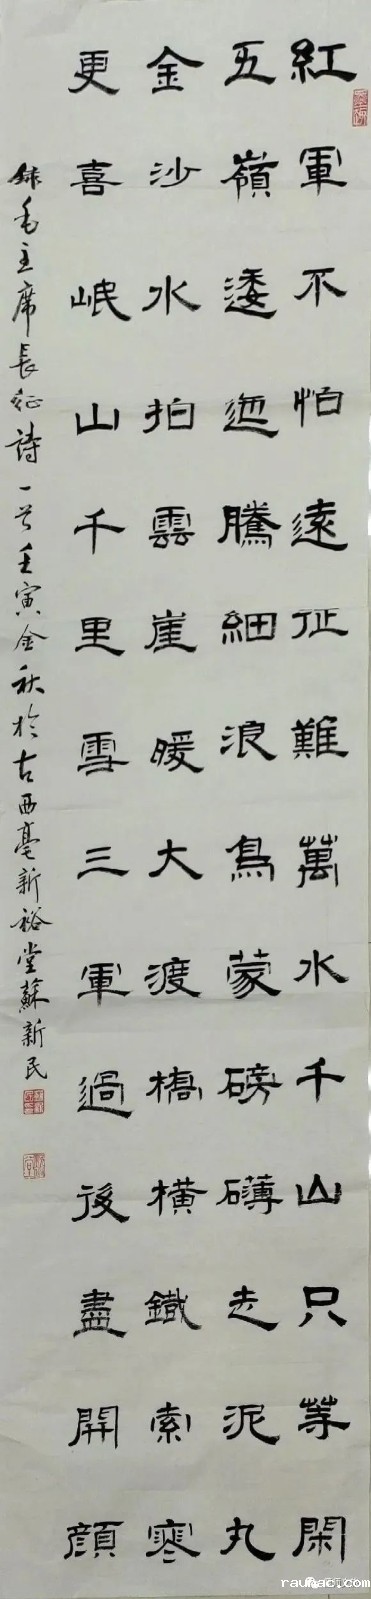 紅軍不怕遠征難萬水千山只等閑
五嶺逶迤騰細浪烏蒙磅礴走泥丸
金沙水拍雲崖暖大渡橋橫鐵索寒
更喜岷山千里雪三軍過後盡開顏
錄毛主席長征詩一首壬寅金秋於古西亳新裕堂蘇新民